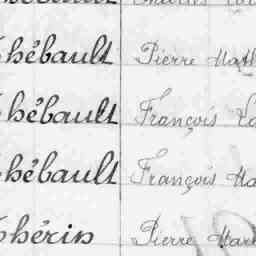 hébault Pierre Math
hébault François
hébault François Ma
hérin Pierre Mar